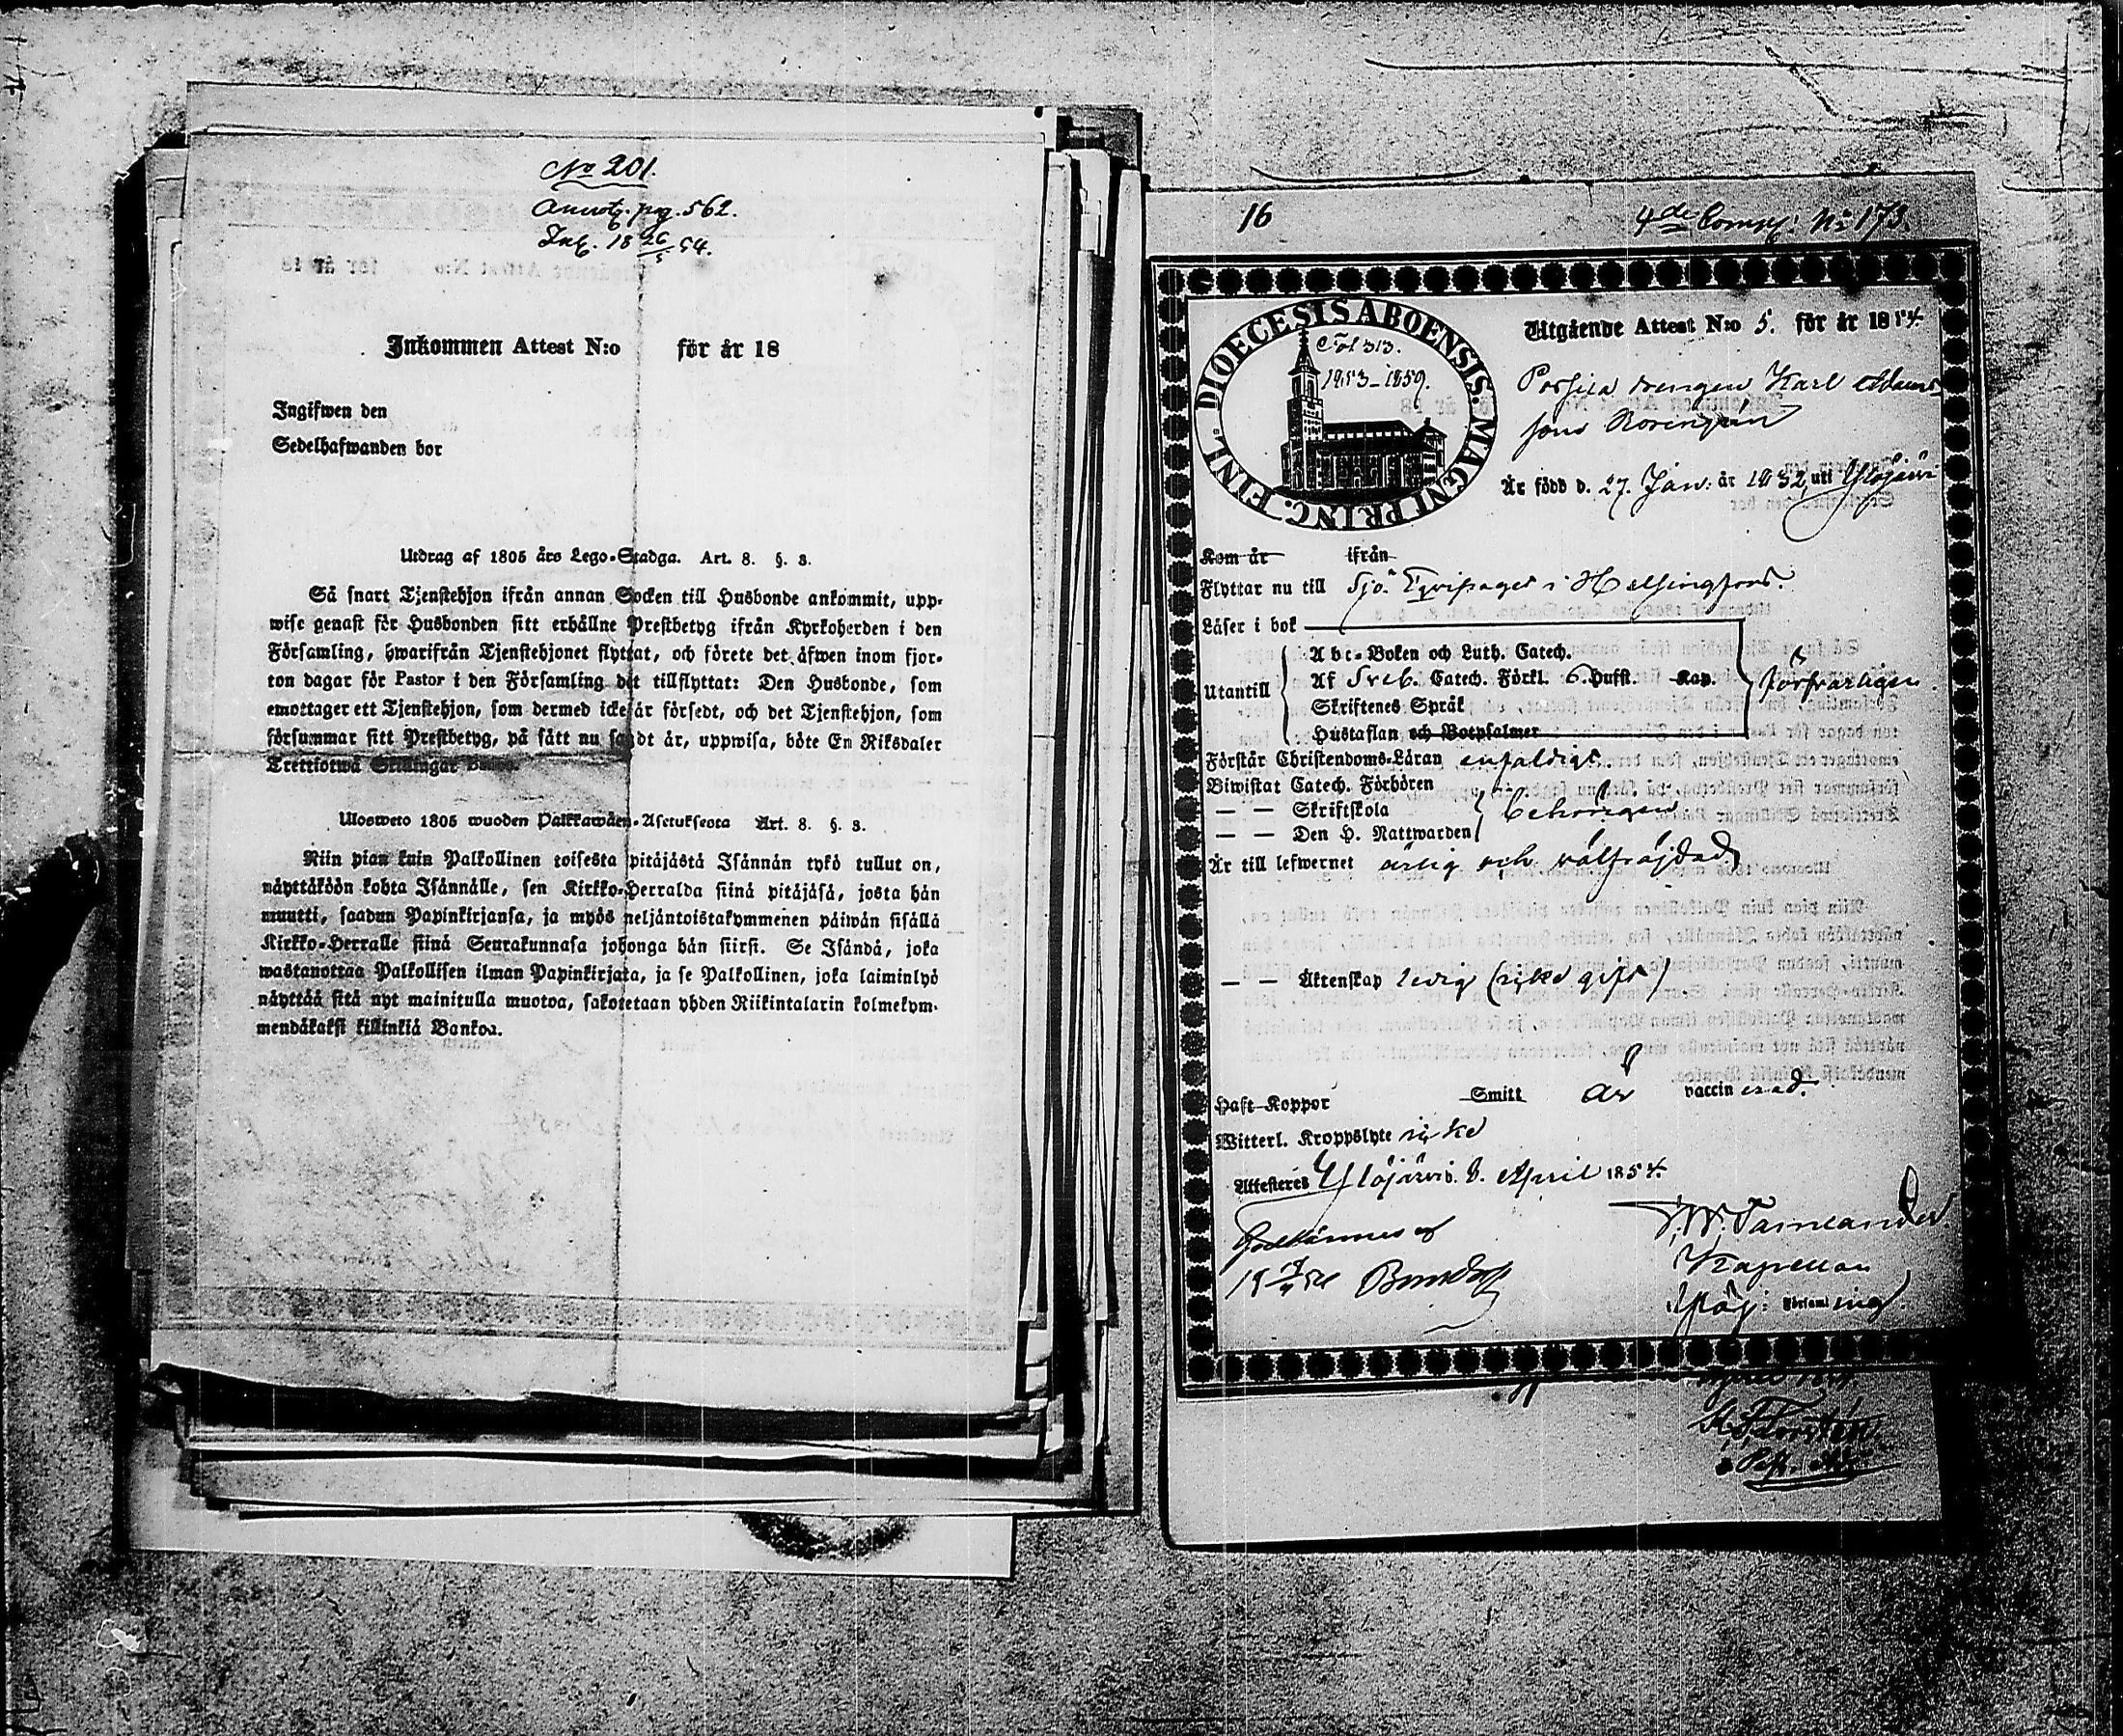 No 201.
Annot. pag. 562.
Ink. 18 26/5 54.
Inkommen Attest N:o för år 18
Ingifwen den
Sedelhafwanden bor
Utdrag af 1805 års Lego-Stadga. Art. 8. §. 3.
Så snart Tjenstehjon ifrån annan Socken till Husbonde ankommit, upp-
wise genast för Husbonden sitt erhållne Prestbetyg ifrån Kyrkoherden i den
Församling, hwarifrån Tjenstehjonet flyttat, och förete det äfwen inom fjor-
ton dagar för Pastor i den Församling det tillflyttat: Den Husbonde, som
emottager ett Tjenstehjon, som dermed icke är försedt, och det Tjenstehjon, som
försummar sitt Prestbetyg, på sätt nu sagdt är, uppwisa, böte En Riksdaler
Trettiotwå Skillingar Banco.
Ulosweto 1805 wuoden Palkkawäen-Asetuksesta Art. 8. §. 3.
Niin pian kuin Palkollinen toisesta pitäjästä Isännän tykö tullut on,
näyttäköön kohta Isännälle, sen Kirkko-Herralda siinä pitäjäsä, josta hän
muutti, saadun Papinkirjansa, ja myös neljäntoistakymmenen päiwän sisällä
Kirkko-Herralle siinä Seurakunnasa johonga hän siirsi. Se Isändä, joka
wastanottaa Palkollisen ilman Papinkirjata, ja se Palkollinen, joka laiminlyö
näyttää sitä nyt mainitulla muotoa, sakotetaan yhden Riikintalarin kolmekym-
mendäkaksi killinkiä Bankoa.
16
4de Comp: No 173.
DIOECESIS ABOENSIS. MAGNI PRINC. FINL.
Fol 313.
1853-1859.
Utgående Attest N:o 5. för år 1854.
Porsila drengen Karl Adams-
sons Norengrén
Är född d. 27. Jan: år 1832, uti Ylöjärvi
Kom år ifrån
Flyttar nu till Sjö Eqvipaget i Helsingfors.
Läser i bok
Abc-Boken och Luth. Catech.
Utantill Af Sveb. Catech. Förkl. 6. Hufst. Kap. försvarligen.
Skriftenes Språk
Hustaflan och Botpsalmer
Förstår Christendoms-Läran enfaldigt.
Biwistat Catech. Förhören
— — Skriftskola behörigen
— — Den H. Nattwarden
Är till lefwernet ärlig och välfräjdad.
— — Äktenskap ledig (icke gift)
Haft Koppor Smitt är vaccinerad.
Witterl. Kroppslyte icke
Attesteres Ylöjärvi d. April 1854.
Godkännes af
Kapellan
Ylöj: Församling.